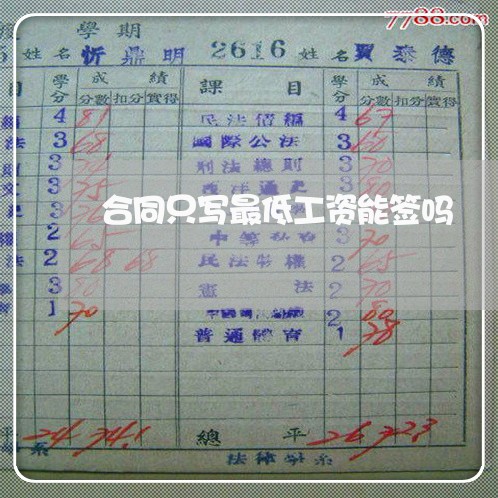 7788.com
學期
姓名 忻鼎明 2616 姓名 賈泰德
目 學分 成績 課目 學分 成績
分數 扣分 實得 分數 扣分 實得
4 81 民法債編 4 67
法 3 68 國際公法 3 60
3 刑法總則 3 70
3 75 西洋通史 3 80
合同只写最低工资能签吗
2 65 3 70
法 2 68 68 民法物權 2 65
3 80 憲法 2 70
1 70 2 80
普通體育 1 78
平 24 總平 26
系 法律學系